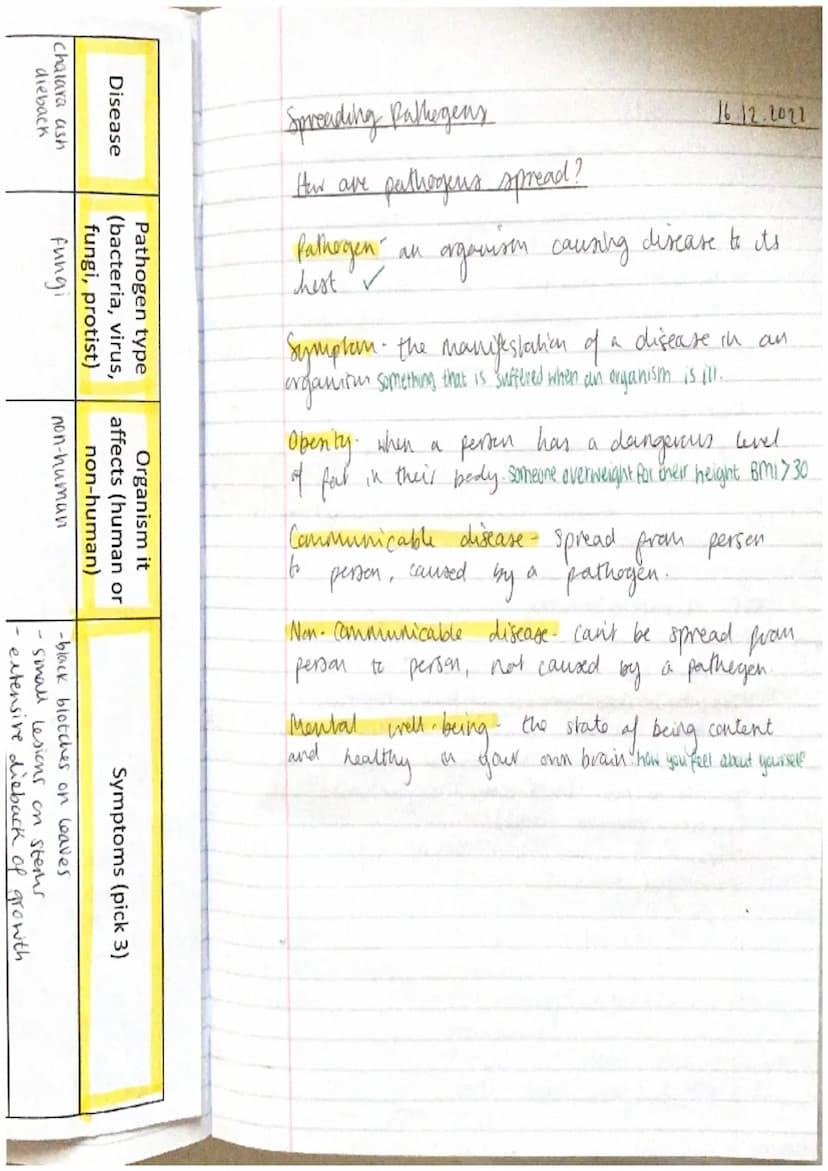 Disease
Pathogen type
(bacteria, virus,
fungi, protist)
Organism it
affects (human or
non-human)
Symptoms (pick 3)
Chalara ash
dieback
fungi
non-human
-black blotches on leaves
- small lesions on stems
- extensive dieback of growth
Spreading Pathogens 16.12.2022
How are pathogens spread?
Pathogen- an organism causing disease to its
host ✓
Symptom- the manifestation of a disease in an
organism something that is suffered when an organism is ill.
Obesity- when a person has a dangerous level
of fat in their body. someone overweight for their height BMI>30
Communicable disease- spread from person
to person, caused by a pathogen.
Non-communicable disease- can't be spread from
person to person, not caused by a pathogen.
Mental well-being- the state of being content
and healthy in your own brain. how you feel about yourself